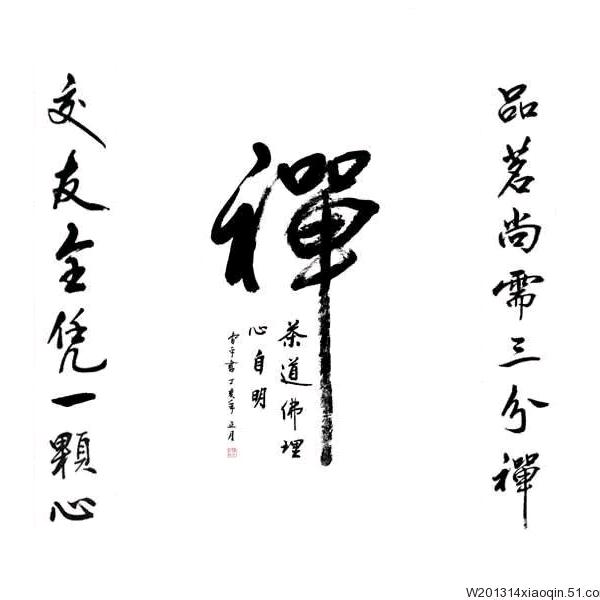 品茗尚需三分禪
禪
茶道佛理
心自明
雪平書丁亥年正月
交友全凭一顆心
W201314xiaoqin.51.co